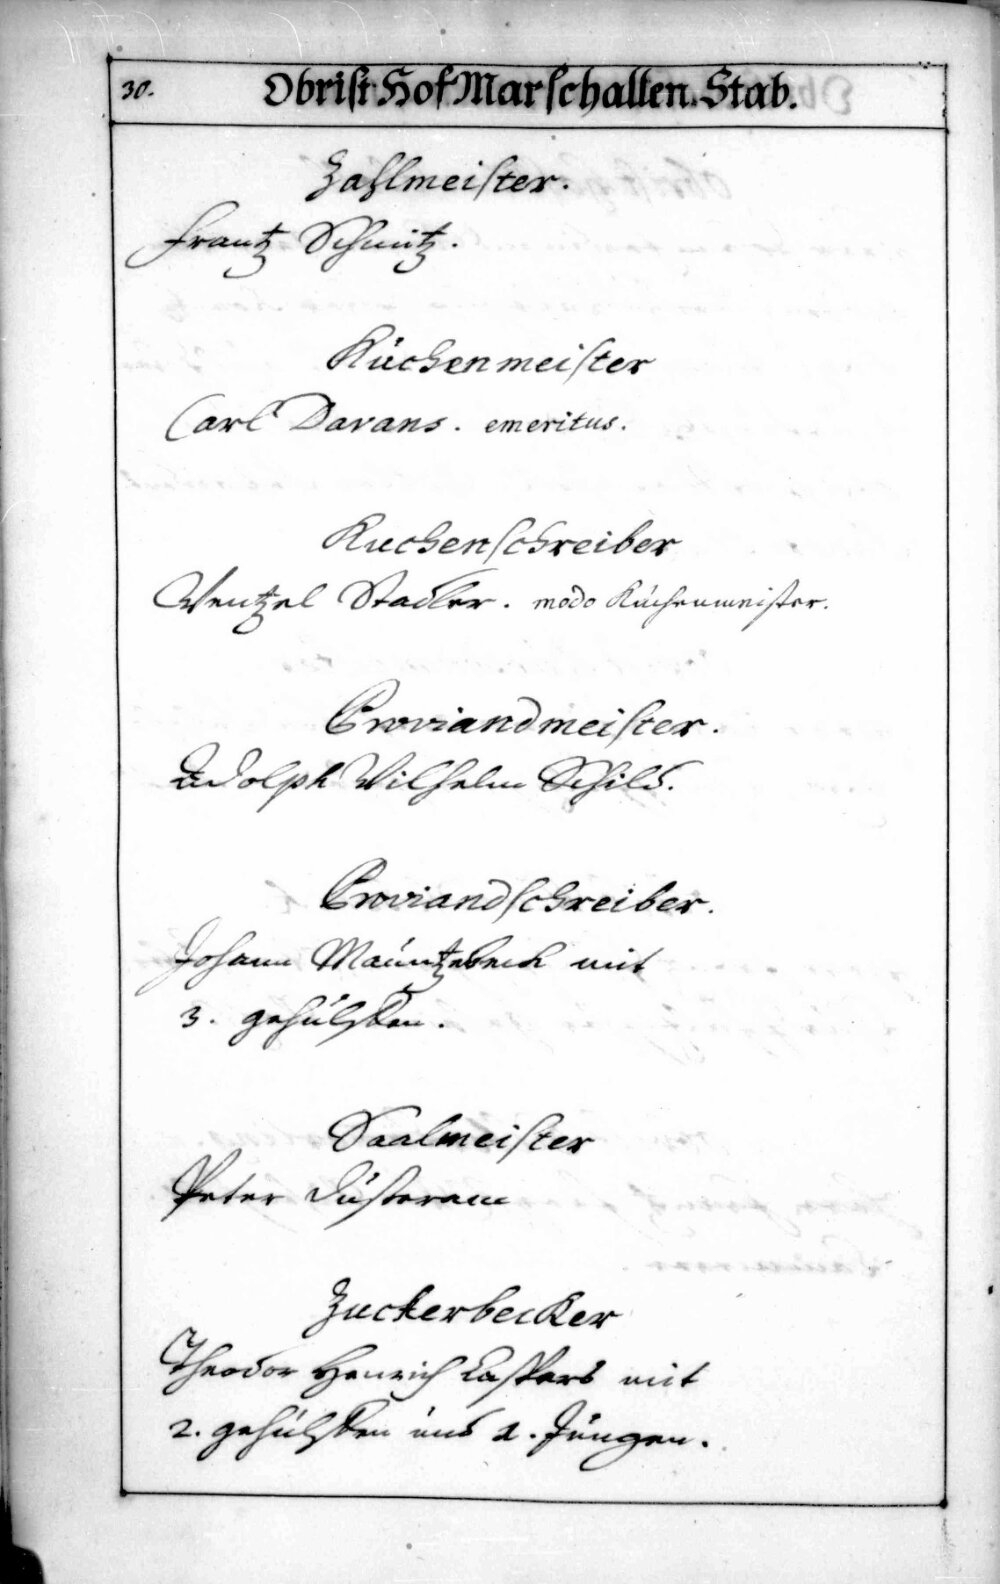 30. Obrist Hof Marschallen Stab.
Zahlmeister.
Frantz Schmitz.
Küchenmeister
Carl Davans. emeritus.
Kuchenschreiber
Wentzel Stadler. modo Küchenmeister.
Proviandmeister.
Adolph Wilhelm Schild.
Proviandschreiber.
Johann Mäuntzebeck mit
3. gehülffen.
Saalmeister
Peter
Zuckerbecker
Theodor Henrich Caspars mit
2. gehülffen und 2. Jüngen.